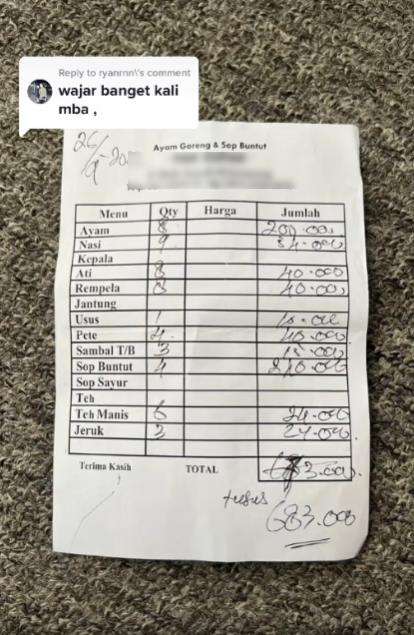 Reply to ryanrnn\'s comment
wajar banget kali
mba ,
26/
Ayam Goreng & Sop Buntut
Menu Qty Harga Jumlah
Ayam 8 200.000
Nasi 9 54.000
Kepala
Ati 8 40.000
Rempela 8 40.000
Jantung
Usus 1
Pete 4 40.000
Sambal T/B 3 15.000
Sop Buntut 4
Sop Sayur
Teh
Teh Manis 6 24.000
Jeruk 3 24.000
Terima Kasih TOTAL 683.000
683.000